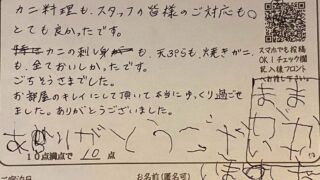 カニ料理も、スタッフの皆様のご対応も
とても良かったです。
カニの刺し身も、天ぷらも、焼きガニ
も、全ておいしかったです。
ごちそうさまでした。
お部屋のキレイにして頂いて本当にゆっくり過ごせ
ました。ありがとうございました。
ありがとうございました
10点満点で 10 点
スマホでも投稿
OK！チェック欄
記入後フロント
お名前(匿名可)